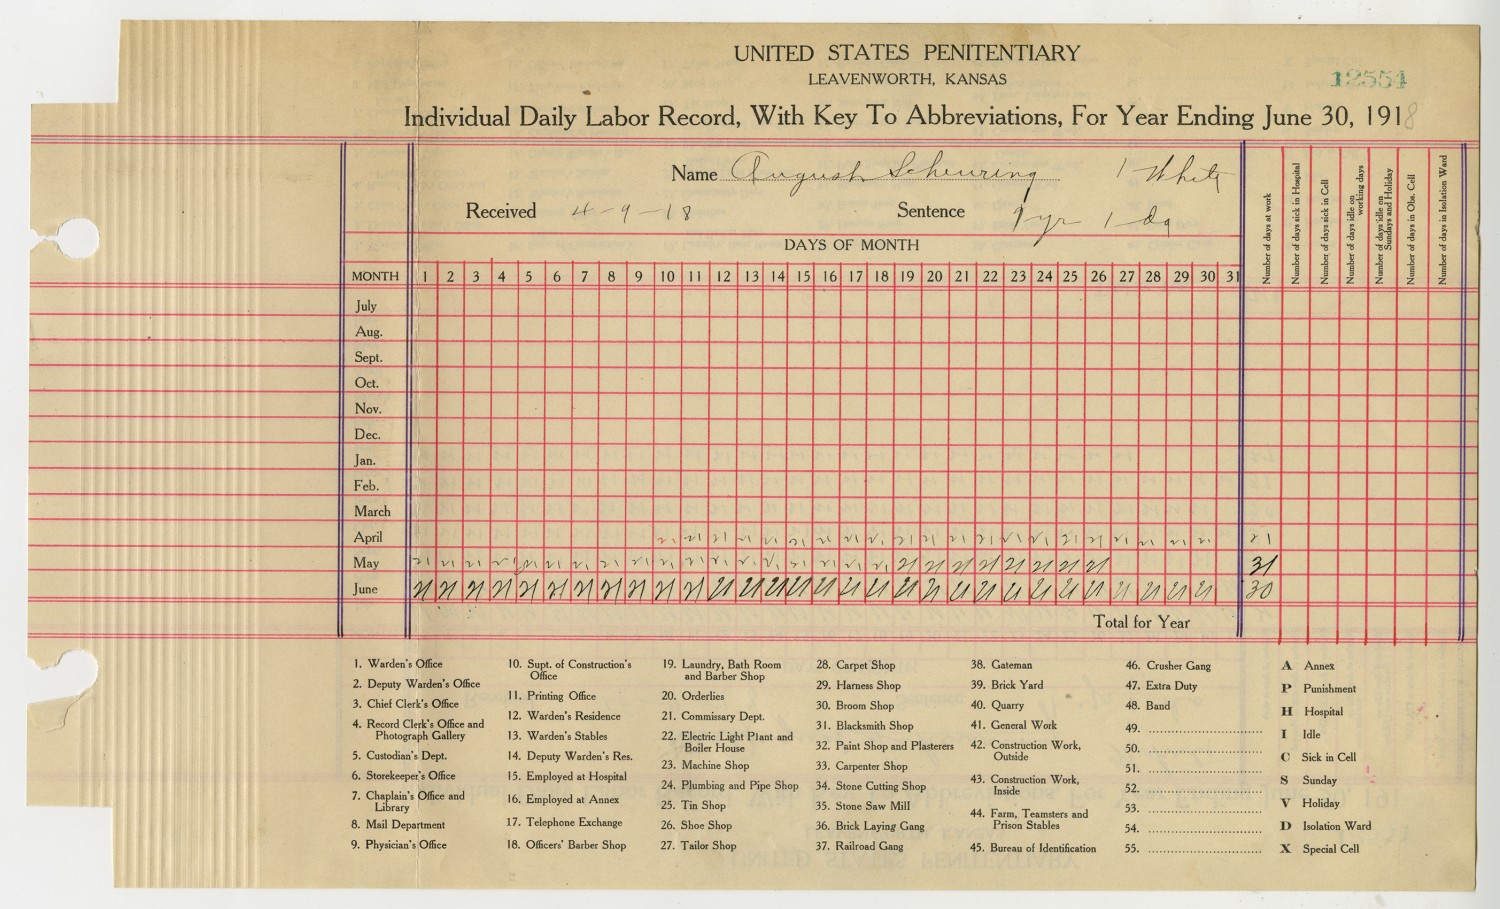 UNITED STATES PENITENTIARY
LEAVENWORTH, KANSAS
12554
Individual Daily Labor Record, With Key To Abbreviations, For Year Ending June 30, 1918
Name August Scheuring 1 White
Received 4-9-18 Sentence 1 yr 1 da
DAYS OF MONTH
MONTH 1 2 3 4 5 6 7 8 9 10 11 12 13 14 15 16 17 18 19 20 21 22 23 24 25 26 27 28 29 30 31
Number of days at work
Number of days sick in Hospital
Number of days sick in Cell
Number of days idle on working days
Number of days idle on Sundays and Holiday
Number of days in Obs. Cell
Number of days in Isolation Ward
July
Aug.
Sept.
Oct.
Nov.
Dec.
Jan.
Feb.
March
April 21 21 21 21 21 21 21 21 21 21 21 21 21 21 21 21 21 21 21 21 21 21
May 21 21 21 21 21 21 21 21 21 21 21 21 21 21 21 21 21 21 21 21 21 21 21 21 21 21 31
June 21 21 21 21 21 21 21 21 21 21 21 21 21 21 21 21 21 21 21 21 21 21 21 21 21 21 21 21 21 21 30
Total for Year
1. Warden's Office
2. Deputy Warden's Office
3. Chief Clerk's Office
4. Record Clerk's Office and
Photograph Gallery
5. Custodian's Dept.
6. Storekeeper's Office
7. Chaplain's Office and
Library
8. Mail Department
9. Physician's Office
10. Supt. of Construction's
Office
11. Printing Office
12. Warden's Residence
13. Warden's Stables
14. Deputy Warden's Res.
15. Employed at Hospital
16. Employed at Annex
17. Telephone Exchange
18. Officers' Barber Shop
19. Laundry, Bath Room
and Barber Shop
20. Orderlies
21. Commissary Dept.
22. Electric Light Plant and
Boiler House
23. Machine Shop
24. Plumbing and Pipe Shop
25. Tin Shop
26. Shoe Shop
27. Tailor Shop
28. Carpet Shop
29. Harness Shop
30. Broom Shop
31. Blacksmith Shop
32. Paint Shop and Plasterers
33. Carpenter Shop
34. Stone Cutting Shop
35. Stone Saw Mill
36. Brick Laying Gang
37. Railroad Gang
38. Gateman
39. Brick Yard
40. Quarry
41. General Work
42. Construction Work,
Outside
43. Construction Work,
Inside
44. Farm, Teamsters and
Prison Stables
45. Bureau of Identification
46. Crusher Gang
47. Extra Duty
48. Band
49.
50.
51.
52.
53.
54.
55.
A Annex
P Punishment
H Hospital
I Idle
C Sick in Cell
S Sunday
V Holiday
D Isolation Ward
X Special Cell